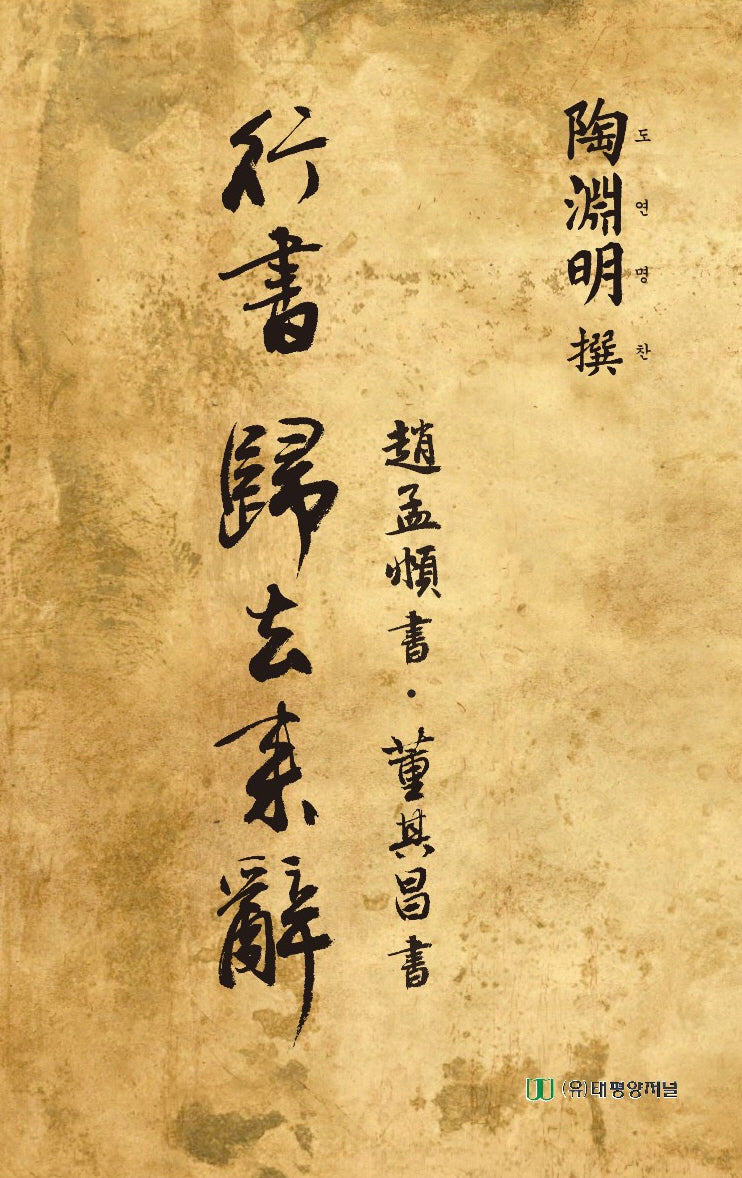 陶淵明 撰
도연명 찬
趙孟頫書·董其昌書
行書 歸去來辭
(유)태평양저널